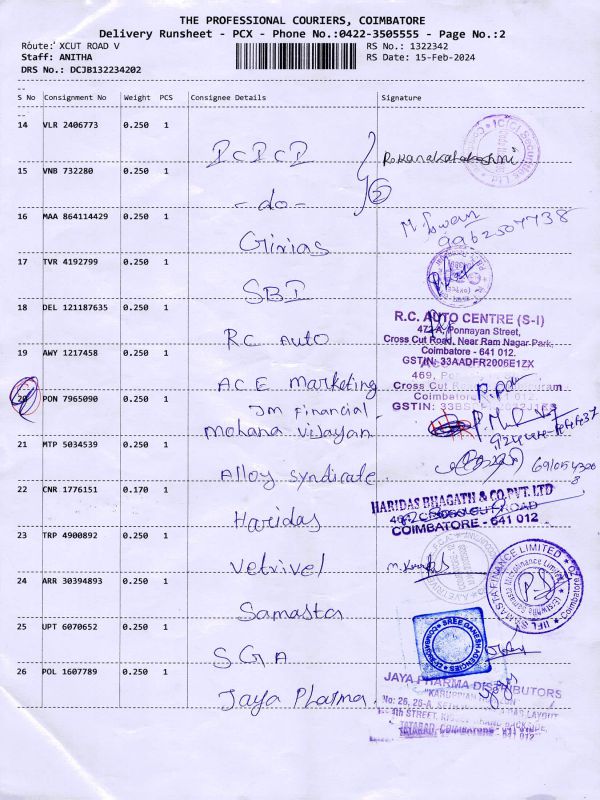 THE PROFESSIONAL COURIERS, COIMBATORE
Delivery Runsheet - PCX - Phone No.:0422-3505555 - Page No.:2
Route: XCUT ROAD V
RS No.: 1322342
Staff: ANITHA
RS Date: 15-Feb-2024
DRS No.: DCJB132234202
S No Consignment No Weight PCS Consignee Details Signature
14 VLR 2406773 0.250 1
ICICI
15 VNB 732280 0.250 1
-do-
5
16 MAA 864114429 0.250 1
9962507738
Girias
17 TVR 4192799 0.250 1
SBI
18 DEL 121187635 0.250 1
R.C. AUTO CENTRE (S-I)
472-A, Ponnayan Street,
Cross Cut Road, Near Ram Nagar Park,
Coimbatore - 641 012.
GSTIN: 33AADFR2006E1ZX
RC Auto
19 AWY 1217458 0.250 1
469,
Cross Cut
Coimbatore 641 012.
GSTIN:
ACE Marketing
20 PON 7965090 0.250 1
JM Financial
Mohana Vijayan
21 MTP 5034539 0.250 1
Alloy Syndicate
22 CNR 1776151 0.170 1
HARIDAS BHAGATH & CO.PVT. LTD
ROAD
COIMBATORE - 641 012
Haridas
23 TRP 4900892 0.250 1
Vetrivel
24 ARR 30394893 0.250 1
IIFL SAMASTA FINANCE LIMITED
Samasta
25 UPT 6070652 0.250 1
SREE GANESH AGENCIES
COIMBATORE
SGA
26 POL 1607789 0.250 1
JAYA PHARMA DISTRIBUTORS
No: 26, 26-A,
LAYOUT
4th STREET,
BACKSIDE,
TATABAD, COIMBATORE - 641 012
Jaya Pharma